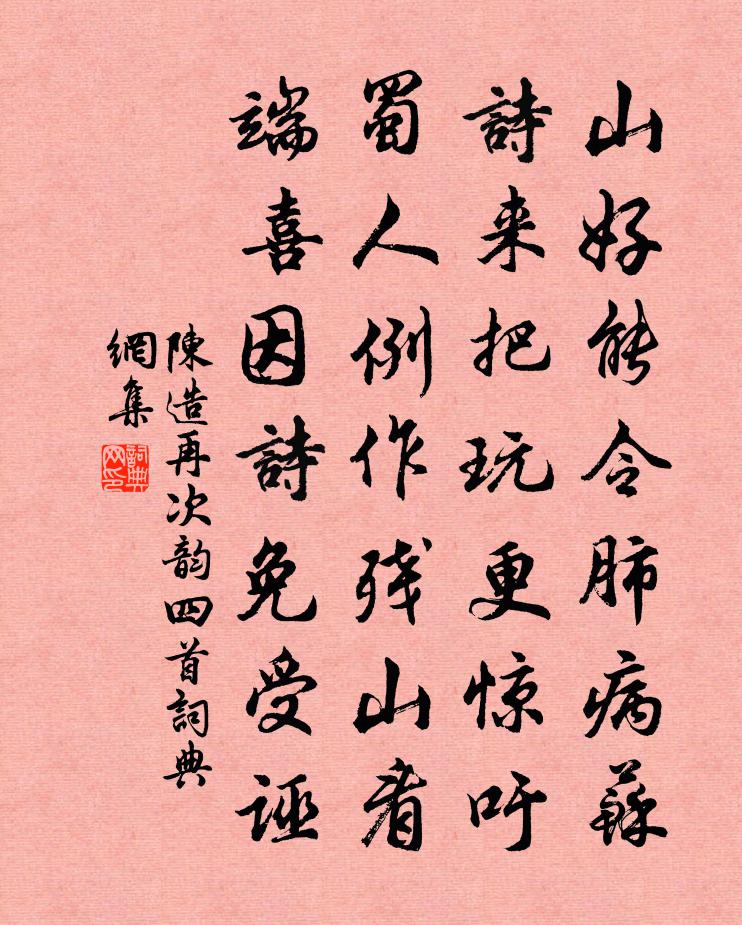 山好能令肺病蘇
詩来把玩更惊吁
蜀人例作残山看
端喜因詩免受誣
陳造再次韵四首詞典
網集
詞典
网印